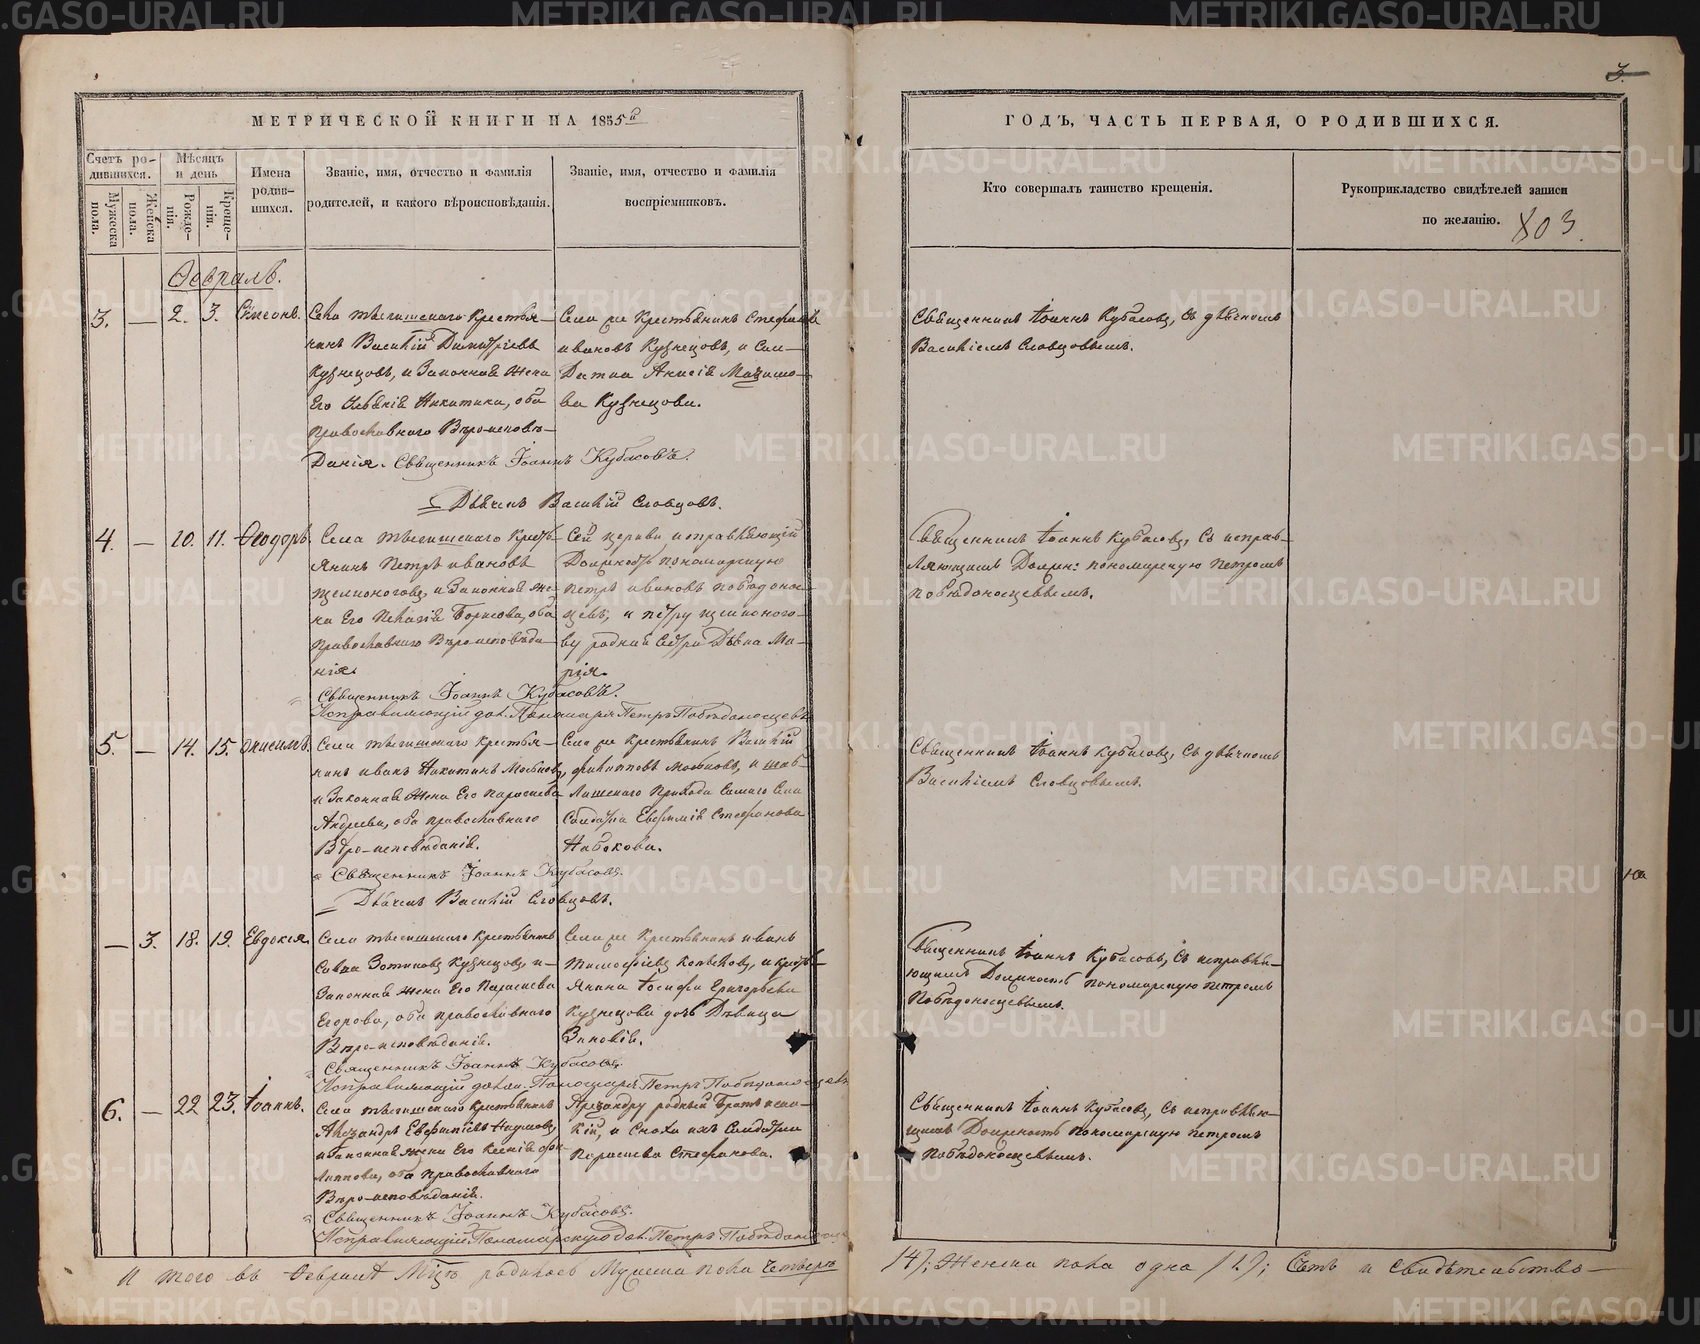 МЕТРИЧЕСКОЙ КНИГИ НА 1855й
ГОДЪ, ЧАСТЬ ПЕРВАЯ, О РОДИВШИХСЯ.
3.
Счетъ ро-
дившихся.
Мужеска
пола.
Женска
пола.
Мѣсяцъ
и день
Рожде-
нія.
Креще-
нія.
Имена
родив-
шихся.
Званіе, имя, отчество и фамилія
родителей, и какого вѣроисповѣданія.
Званіе, имя, отчество и фамилія
воспріемниковъ.
Кто совершалъ таинство крещенія.
Рукоприкладство свидѣтелей записи
по желанію.
803.
Февраль.
3. — 2. 3. Симеонъ.
Села крестья-
нинъ Василій Димитріевъ
Кузнецовъ, и Законная жена
Его Никитина, оба
православнаго Вѣроисповѣ-
данія. Священникъ Іоаннъ Кубасовъ.
Дьячекъ Василій Словцовъ.
Села же Крестьянинъ Стефанъ
ивановъ Кузнецовъ, и Сол-
датка Анисія
ва Кузнецова.
Священникъ Іоаннъ Кубасовъ, съ дьячкомъ
Василіемъ Словцовымъ.
4. — 10. 11. Феодоръ.
Села Кресть-
янинъ Петръ ивановъ
и Законная же-
на Его Пелагія Борисова, оба
православнаго Вѣроисповѣда-
нія.
Священникъ Іоаннъ Кубасовъ.
Исправляющій дол. Пономаря Петръ Побѣдоносцевъ
Сей церкви исправляющій
Должность пономарскую
петръ ивановъ побѣдонос-
цевъ, и петру
ву родная Сестра Дѣвка Ма-
рія.
Священникъ Іоаннъ Кубасовъ, съ исправ-
ляющимъ Должн: пономарскую петромъ
побѣдоносцевымъ.
5. — 14. 15. Онисимъ.
Села Крестья-
нинъ иванъ Никитинъ
и Законная жена Его парасковья
Андреева, оба православнаго
Вѣро-исповѣданія.
Священникъ Іоаннъ Кубасовъ.
Дьячекъ Василій Словцовъ.
Села же Крестьянинъ Василій
филипповъ и
Прихода Села
Солдатка Евфимія Стефанова
Набокова.
Священникъ Іоаннъ Кубасовъ, съ дьячкомъ
Василіемъ Словцовымъ.
— 3. 18. 19. Евдокія.
Села Крестьянинъ
Савва Зотиковъ Кузнецовъ, и
Законная жена Его Парасковья
Егорова, оба православнаго
Вѣро-исповѣданія.
Священникъ Іоаннъ Кубасовъ.
Исправляющій Пономаря Петръ Побѣдоносцевъ
Села же Крестьянинъ иванъ
Тимофеевъ и кресть-
янина Іосифа Григорьева
Кузнецова дочь Дѣвица
Зиновія.
Священникъ Іоаннъ Кубасовъ, съ исправля-
ющимъ Должность пономарскую петромъ
Побѣдоносцевымъ.
6. — 22 23. Іоаннъ.
Села Крестьянинъ
Александръ Наумовъ,
и Законная жена Его Ксенія фи-
липпова, оба православнаго
Вѣро-исповѣданія.
Священникъ Іоаннъ Кубасовъ.
Исправляющій Пономарскую дол. Петръ
Александру родный Братъ
и Сноха ихъ Солдатка
Парасковья Стефанова.
Священникъ Іоаннъ Кубасовъ, съ исправляю-
щимъ Должность пономарскую петромъ
побѣдоносцевымъ.
И того въ Февралѣ Мцѣ родилось Мужеска пола Четверо
/4/; Женска пола одна /1/; Съть и свидѣтельство-
METRIKI.GASO-URAL.RU